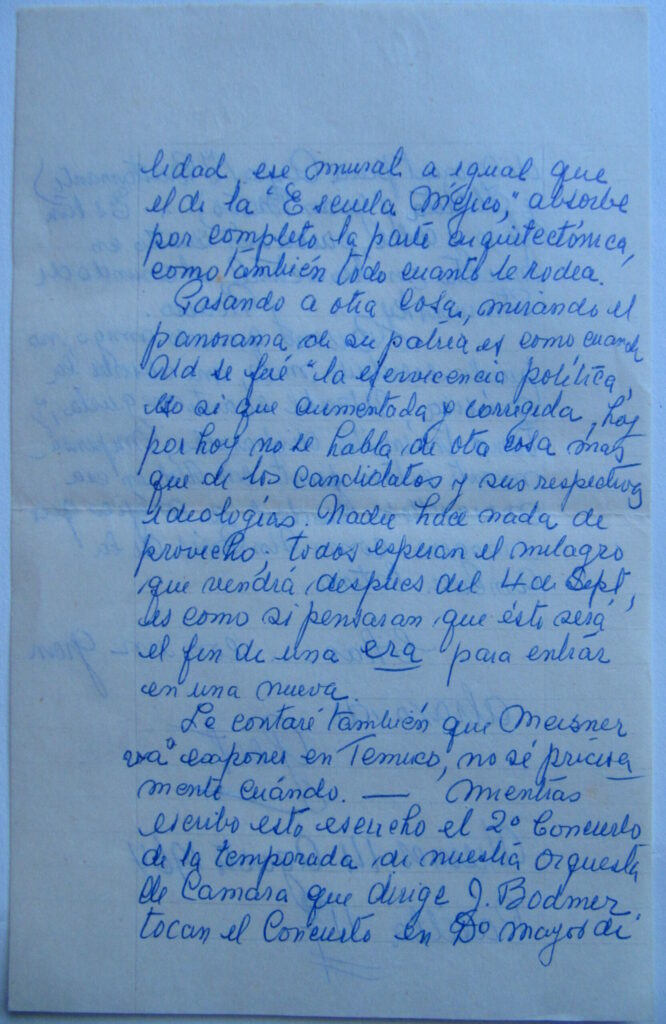 lidad, ese mural a igual que
el de la "Escuela Méjico," absorbe
por completo la parte arquitectónica,
como también todo cuanto le rodea.
Pasando a otra cosa, mirando el
panorama de su patria es como cuando
Ud se fué "la efervicencia política,
eso si que aumentada y corrigida, hoy
por hoy no se habla de ota cosa mas
que de los candidatos y sus respectivas
ideologías. Nadie hace nada de
provecho, todos esperan el milagro
que vendrá despues del 4 de Sept,
es como si pensaran que éste será
el fin de una era para entrár
en una nueva.
Le contaré también que Meisner
vá a exponer en Temuco, no sé précisa
mente cuándo. — Mientras
escribo esto escucho el 2º Concierto
de la temporada de nuestra orquesta
de Camara que dirige J. Bodmer,
tocan el Concierto en Dº mayor de